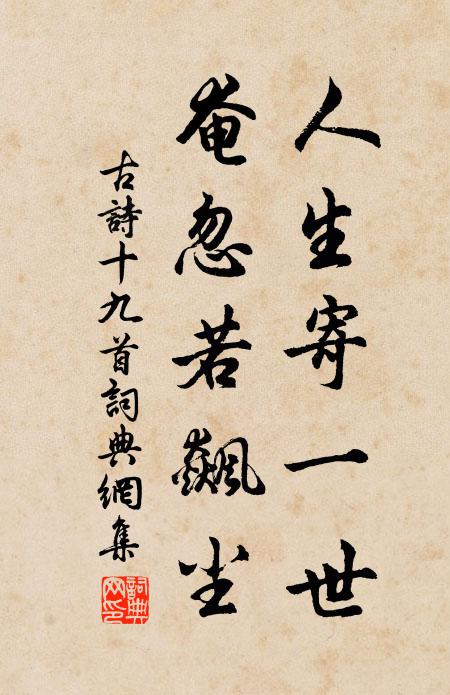 人生寄一世
奄忽若飙尘
古詩十九首詞典網集
詞典網印